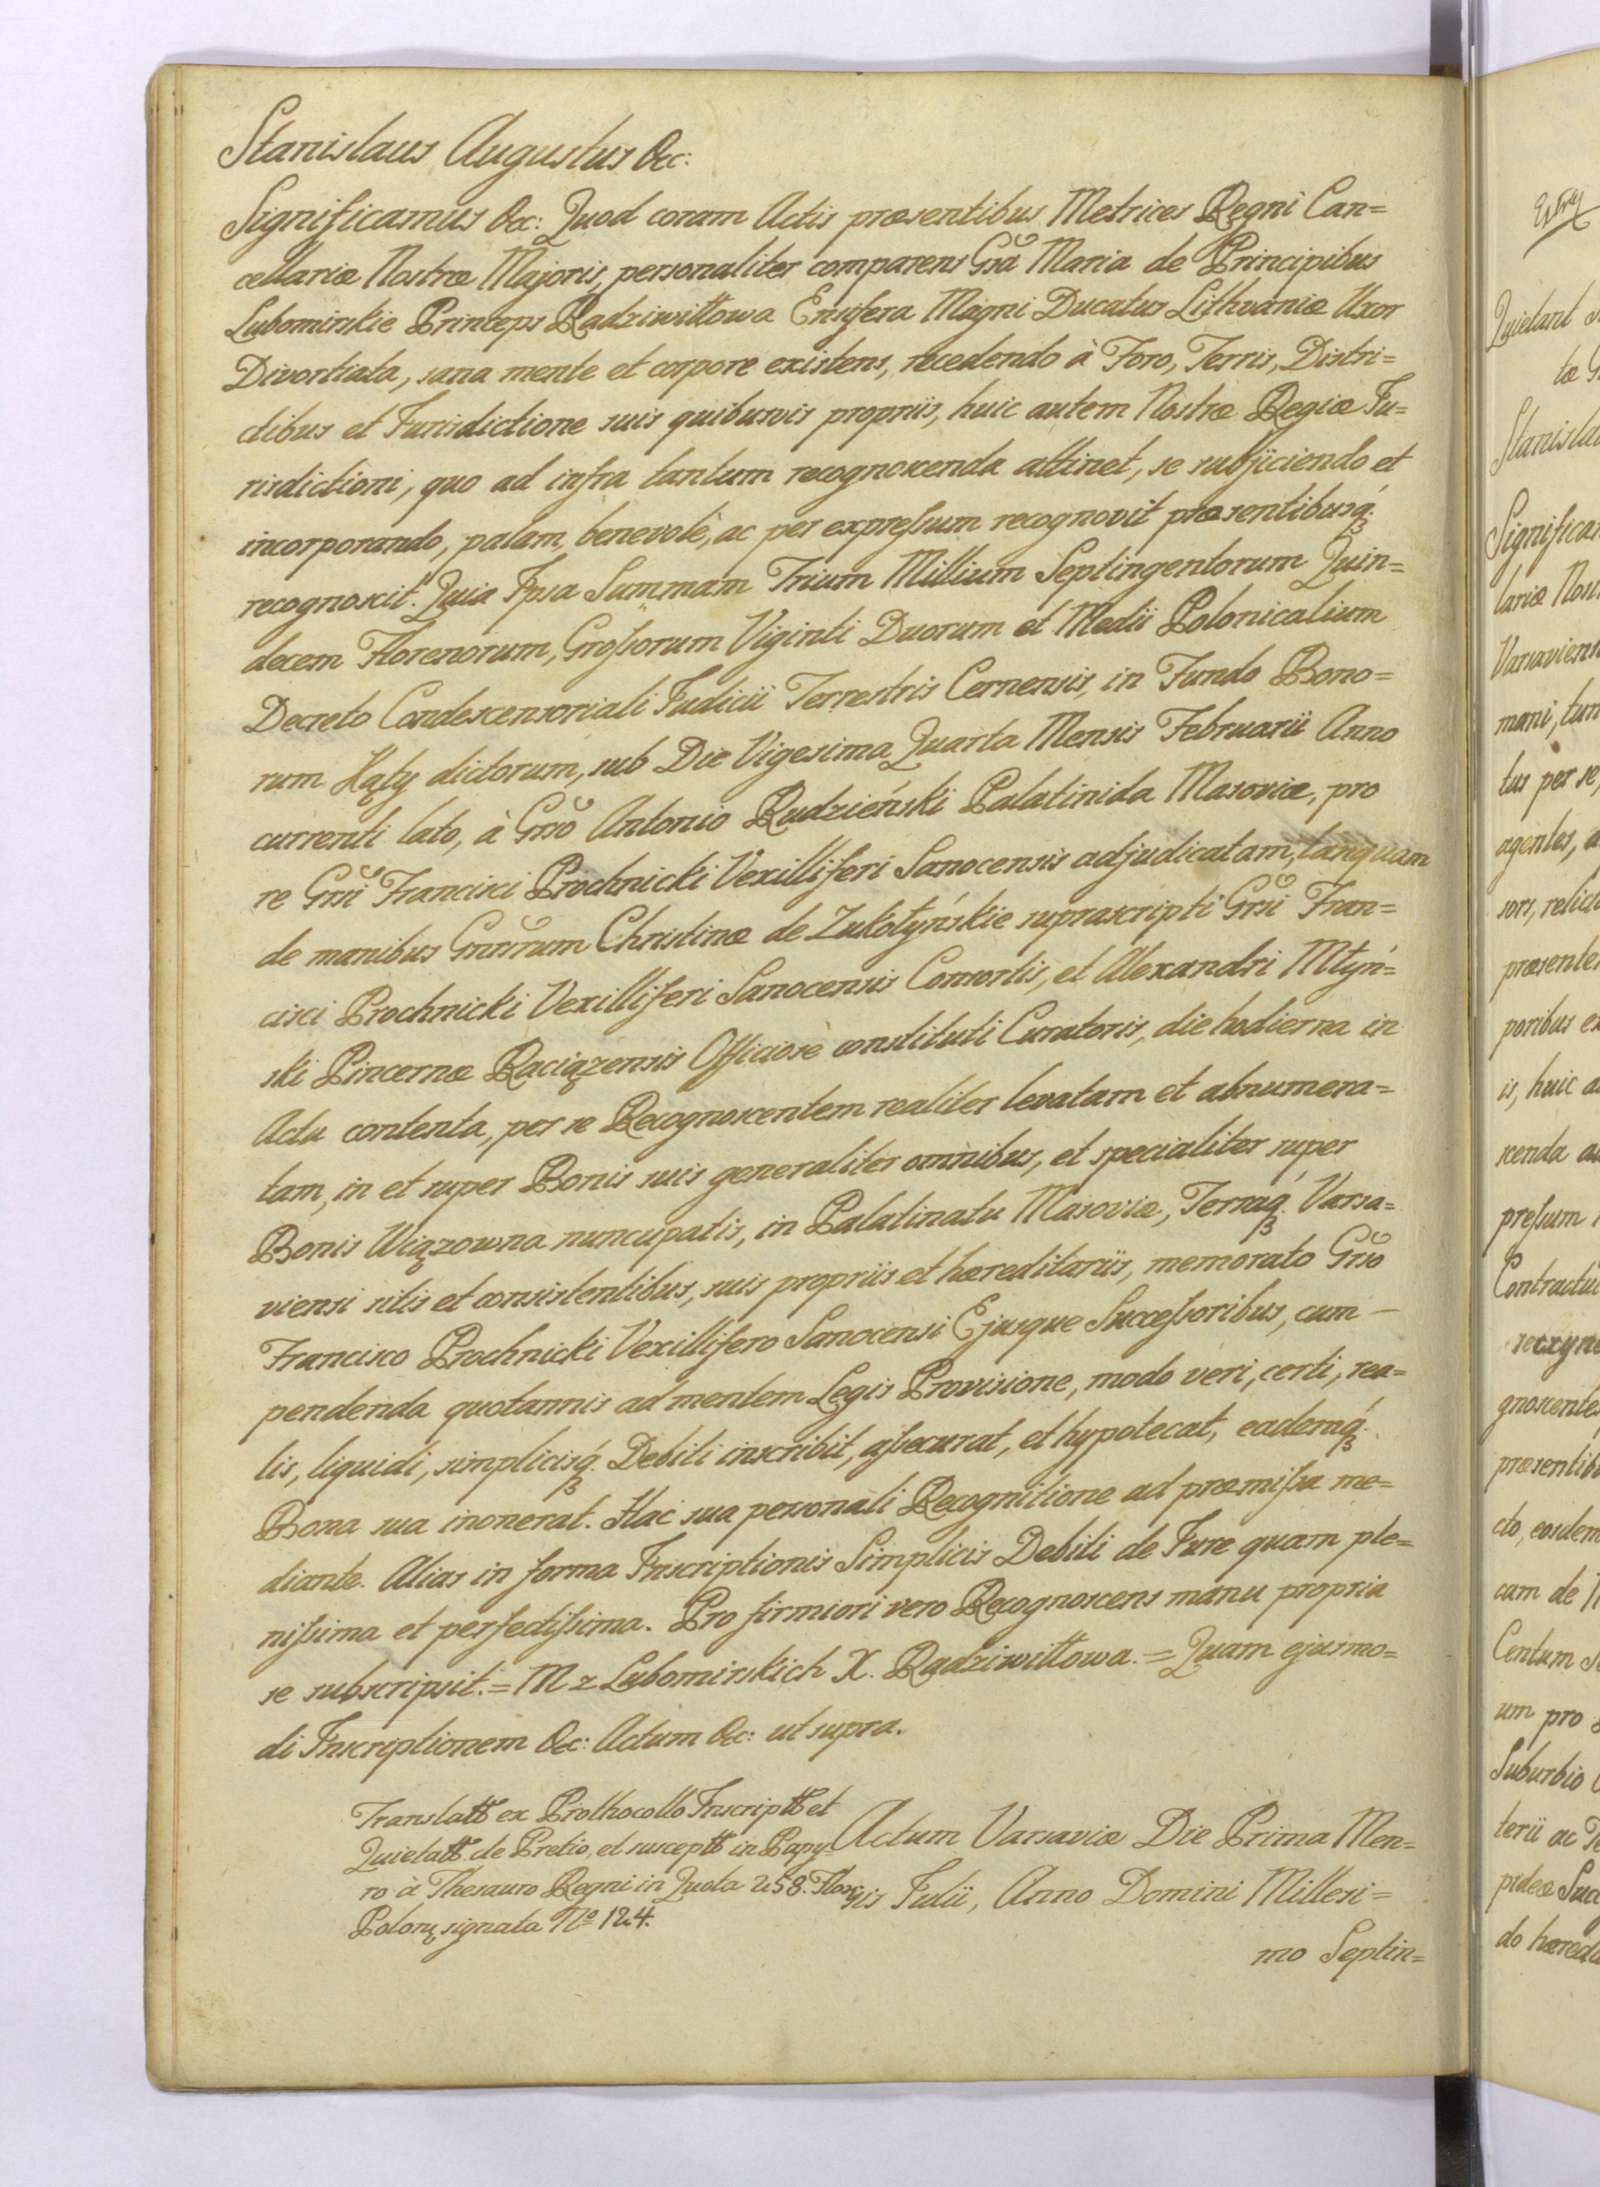 Stanislaus Augustus &c:
Significamus &c: Quod coram Actis præsentibus Metrices Regni Can=
cellariæ Nostræ Majoris, personaliter comparens Gsa Maria de Principibus
Lubomirskie Princeps Radziwiłłowa Ensifera Magni Ducatus Lithvaniæ Uxor
Divortiata, sana mente et corpore existens, recedendo à Foro, Terris, Distri=
ctibus et Jurisdictione suis quibusvis propriis, huic autem Nostræ Regiæ Ju=
risdictioni, quo ad infra tantum recognoscenda attinet, se subjiciendo et
incorporando, palam, benevolè, ac per expressum recognovit præsentibusq́.
recognoscit. Quia Ipsa Summam Trium Millium Septingentorum Quin=
decem Florenorum, Grossorum Viginti Duorum et Medii Polonicalium
Decreto Condescensoriali Judicii Terrestris Cernensis, in Fundo Bono=
rum Kąty dictorum, sub Die Vigesima Quarta Mensis Februarii Anno
currenti lato, à Gso Antonio Rudzieński Palatinida Masoviæ, pro
re Gsi Francisci Prochnicki Vexilliferi Sanocensis adjudicatam, tanquam
de manibus Gnrorum Christinæ de Zukołyńskie suprascripti Gsi Fran=
cisci Prochnicki Vexilliferi Sanocensis Consortis, et Alexandri Młyń=
ski Pincernæ Raciązensis Officiosè constituti Curatoris, die hodierna in
Actu contenta, per se Recognoscentem realiter levatam et abnumera=
tam, in et super Bonis suis generaliter omnibus, et specialiter super
Bonis Wiązowna nuncupatis, in Palatinatu Masoviæ, Terraq́. Varsa=
viensi sitis et consistentibus, suis propriis et hæreditariis, memorato Gso
Francisco Prochnicki Vexillifero Sanocensi Ejusque Successoribus, cum –
pendenda quotannis ad mentem Legis Provisione, modo veri, certi, rea=
lis, liquidi, simplicisq́. Debiti inscribit, assecurat, et hypotecat, eademq́.
Bona sua inonerat. Hac sua personali Recognitione ad præmissa me=
diante. Alias in forma Inscriptionis Simplicis Debiti de Jure quam ple=
nissima et perfectissima. Pro firmiori vero Recognoscens manu propria
se subscripsit. = M z Lubomirskich X. Radziwiłłowa. = Quam ejusmo=
di Inscriptionem &c: Actum &c: ut supra.
Translatt ex Prothocollo Inscriptt et
Quietatt. de Pretio, et susceptt in Papy-
ro à Thesauro Regni in Quota 258. Flor
Polon, signata No 124.
Actum Varsaviæ Die Prima Men=
sis Julii, Anno Domini Millesi=
mo Septin=
Quietant
Stanisla
Significa
lariæ Nos
Varsaviens
mani, tum
tus per se,
agentes, a
sors, relict
præsente
poribus ex
is, huic a
scenda a
pressum
Contractu
recogno
gnoscente
præsentib
cto, eosdem
cam de
Centum
um pro
Suburbio
terii ac Te
pideæ Suc
do hæredi